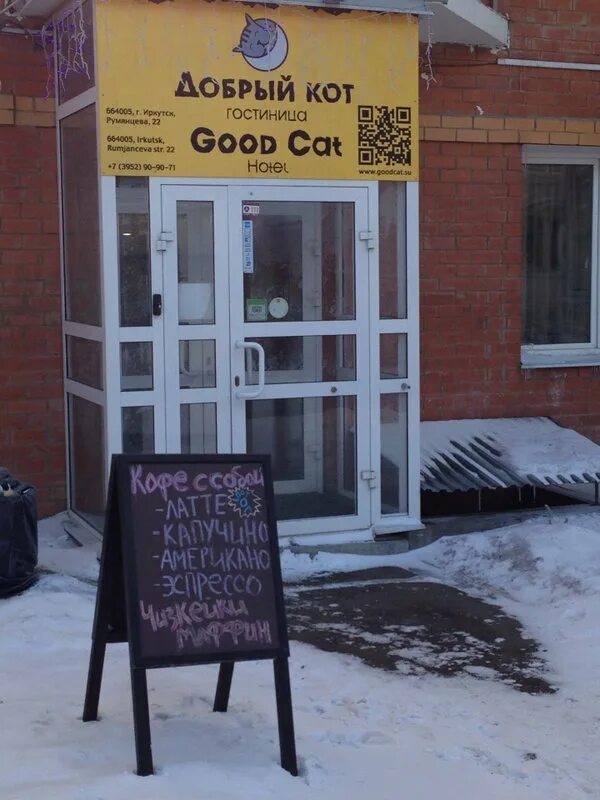 Добрый кот
гостиница
Good Cat
Hotel
664005, г. Иркутск,
Румянцева, 22
664005, Irkutsk,
Rumjanceva street, 22
+7 (3952) 90-90-71
www.goodcat.su
Кофе с собой
-ЛАТТЕ
-КАПУЧИНО
-АМЕРИКАНО
-ЭСПРЕССО
Чизкейки
Маффин